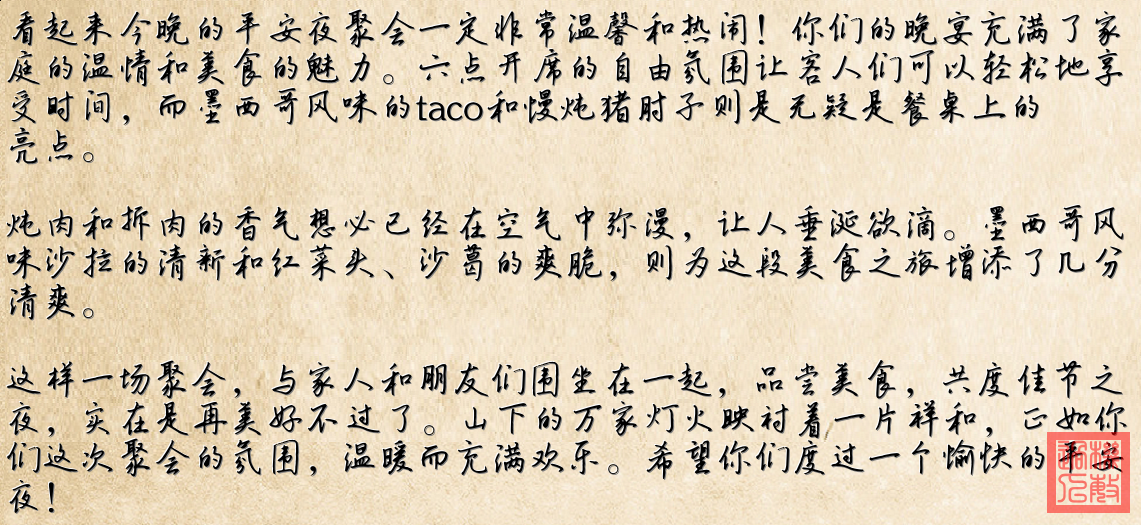 看起来今晚的平安夜聚会一定非常温馨和热闹！你们的晚宴充满了家
庭的温情和美食的魅力。六点开席的自由氛围让客人们可以轻松地享
受时间，而墨西哥风味的taco和慢炖猪肘子则是无疑是餐桌上的
亮点。
炖肉和拆肉的香气想必已经在空气中弥漫，让人垂涎欲滴。墨西哥风
味沙拉的清新和红菜头、沙葛的爽脆，则为这段美食之旅增添了几分
清爽。
这样一场聚会，与家人和朋友们围坐在一起，品尝美食，共度佳节之
夜，实在是再美好不过了。山下的万家灯火映衬着一片祥和，正如你
们这次聚会的氛围，温暖而充满欢乐。希望你们度过一个愉快的平安
夜！